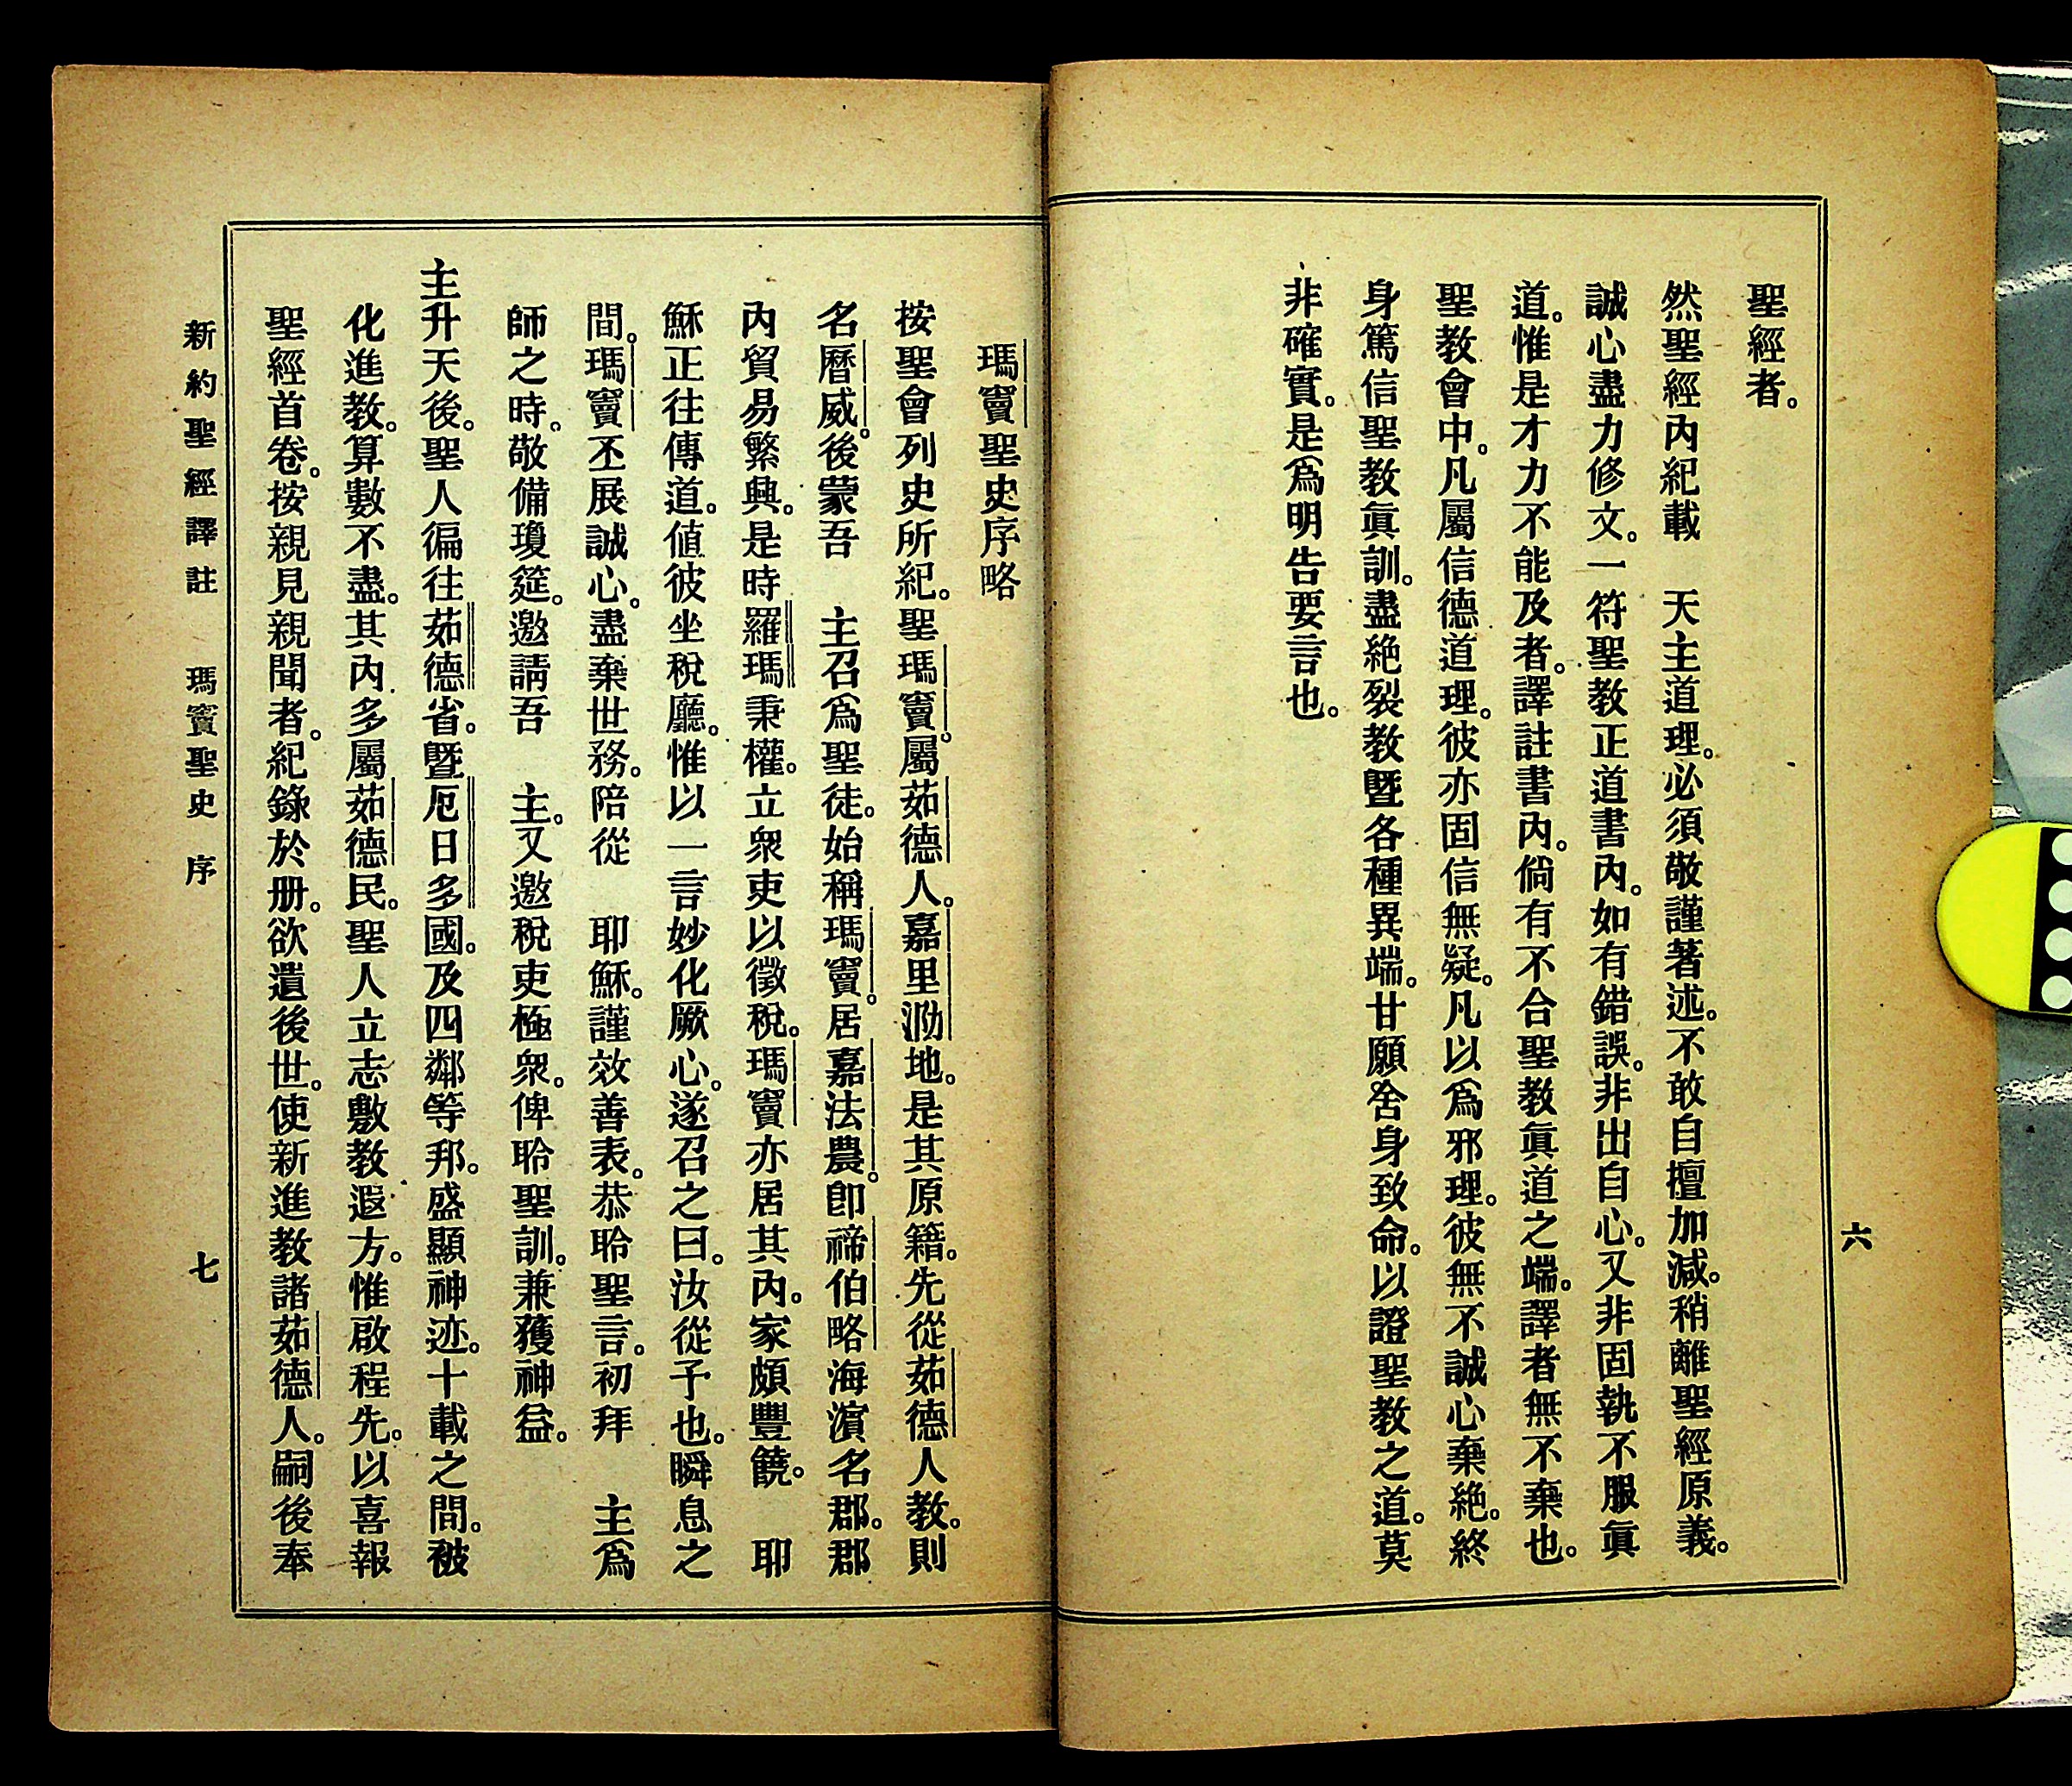 聖經者。
然聖經內紀載　天主道理。必須敬謹著述。不敢自擅加減。稍離聖經原義。
誠心盡力修文。一符聖教正道書內。如有錯誤。非出自心。又非固執不服眞
道。惟是才力不能及者。譯註書內。倘有不合聖教眞道之端。譯者無不棄也。
聖教會中。凡屬信德道理。彼亦固信無疑。凡以爲邪理。彼無不誠心棄絶。終
身篤信聖教眞訓。盡絶裂教曁各種異端。甘願舍身致命。以證聖教之道。莫
非確實。是爲明告要言也。
六
瑪竇聖史序略
按聖會列史所紀。聖瑪竇。屬茹德人。嘉里泐地。是其原籍。先從茹德人教。則
名曆威。後蒙吾　主召爲聖徒。始稱瑪竇。居嘉法農。卽褅伯略海濵名郡。郡
內貿易繁興。是時羅瑪秉權。立衆吏以徵稅。瑪竇亦居其內。家頗豐饒。　耶
穌正往傳道。値彼坐稅廳。惟以一言妙化厥心。遂召之曰。汝從予也。瞬息之
間。瑪竇丕展誠心。盡棄世務。陪從　耶穌。謹效善表。恭聆聖言。初拜　主爲
師之時。敬備瓊筵。邀請吾　主。又邀稅吏極衆。俾聆聖訓。兼獲神益。
主升天後。聖人徧往茹德省。曁厄日多國。及四鄰等邦。盛顯神迹。十載之間。被
化進教。算數不盡。其內多屬茹德民。聖人立志敷教遐方。惟啟程先。以喜報
聖經首卷。按親見親聞者。紀錄於册。欲遺後世。使新進教諸茹德人。嗣後奉
新約聖經譯註　瑪竇聖史　序
七